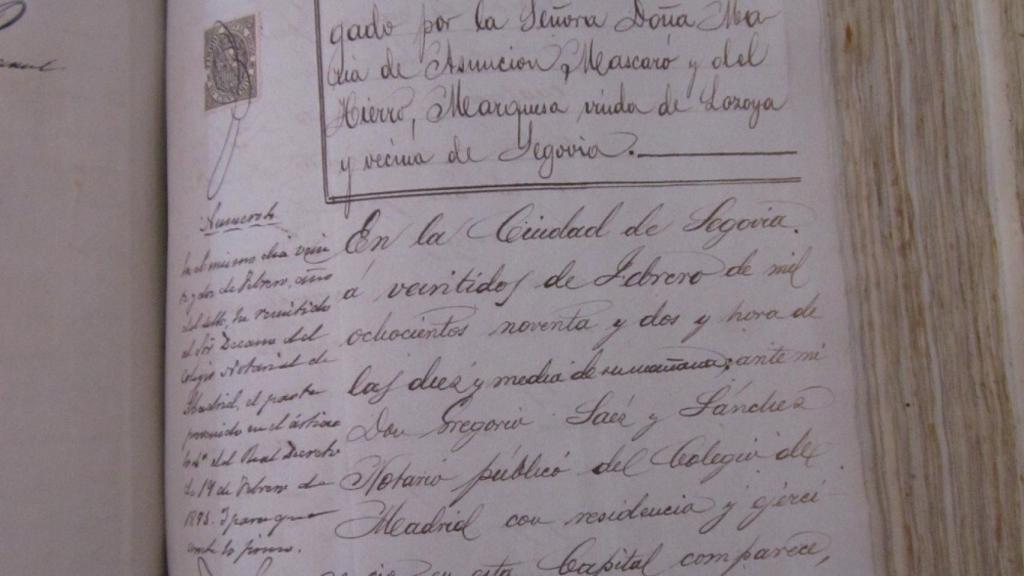 gado por la Señora Doña Ma-
ria de Asuncion Mascaró y del
Hierro, Marquesa viuda de Lozoya
y vecina de Segovia.
En la Ciudad de Segovia.
á veintidos de Febrero de mil
ochocientos noventa y dos y hora de
las diez y media de su mañana; ante mi
Don Gregorio Saéz y Sánchez
Notario público del Colegio de
Madrid con residencia y ejerci
cio en esta Capital comparece,
En el mismo dia vein
te y dos de Febrero, año
del sello, he remitido
al Sor. Decano del
Colegio Notarial de
Madrid, el parte
prevenido en el artícu
lo del Real Decreto
de 14 de Febrero de
Y para que
conste lo firmo.